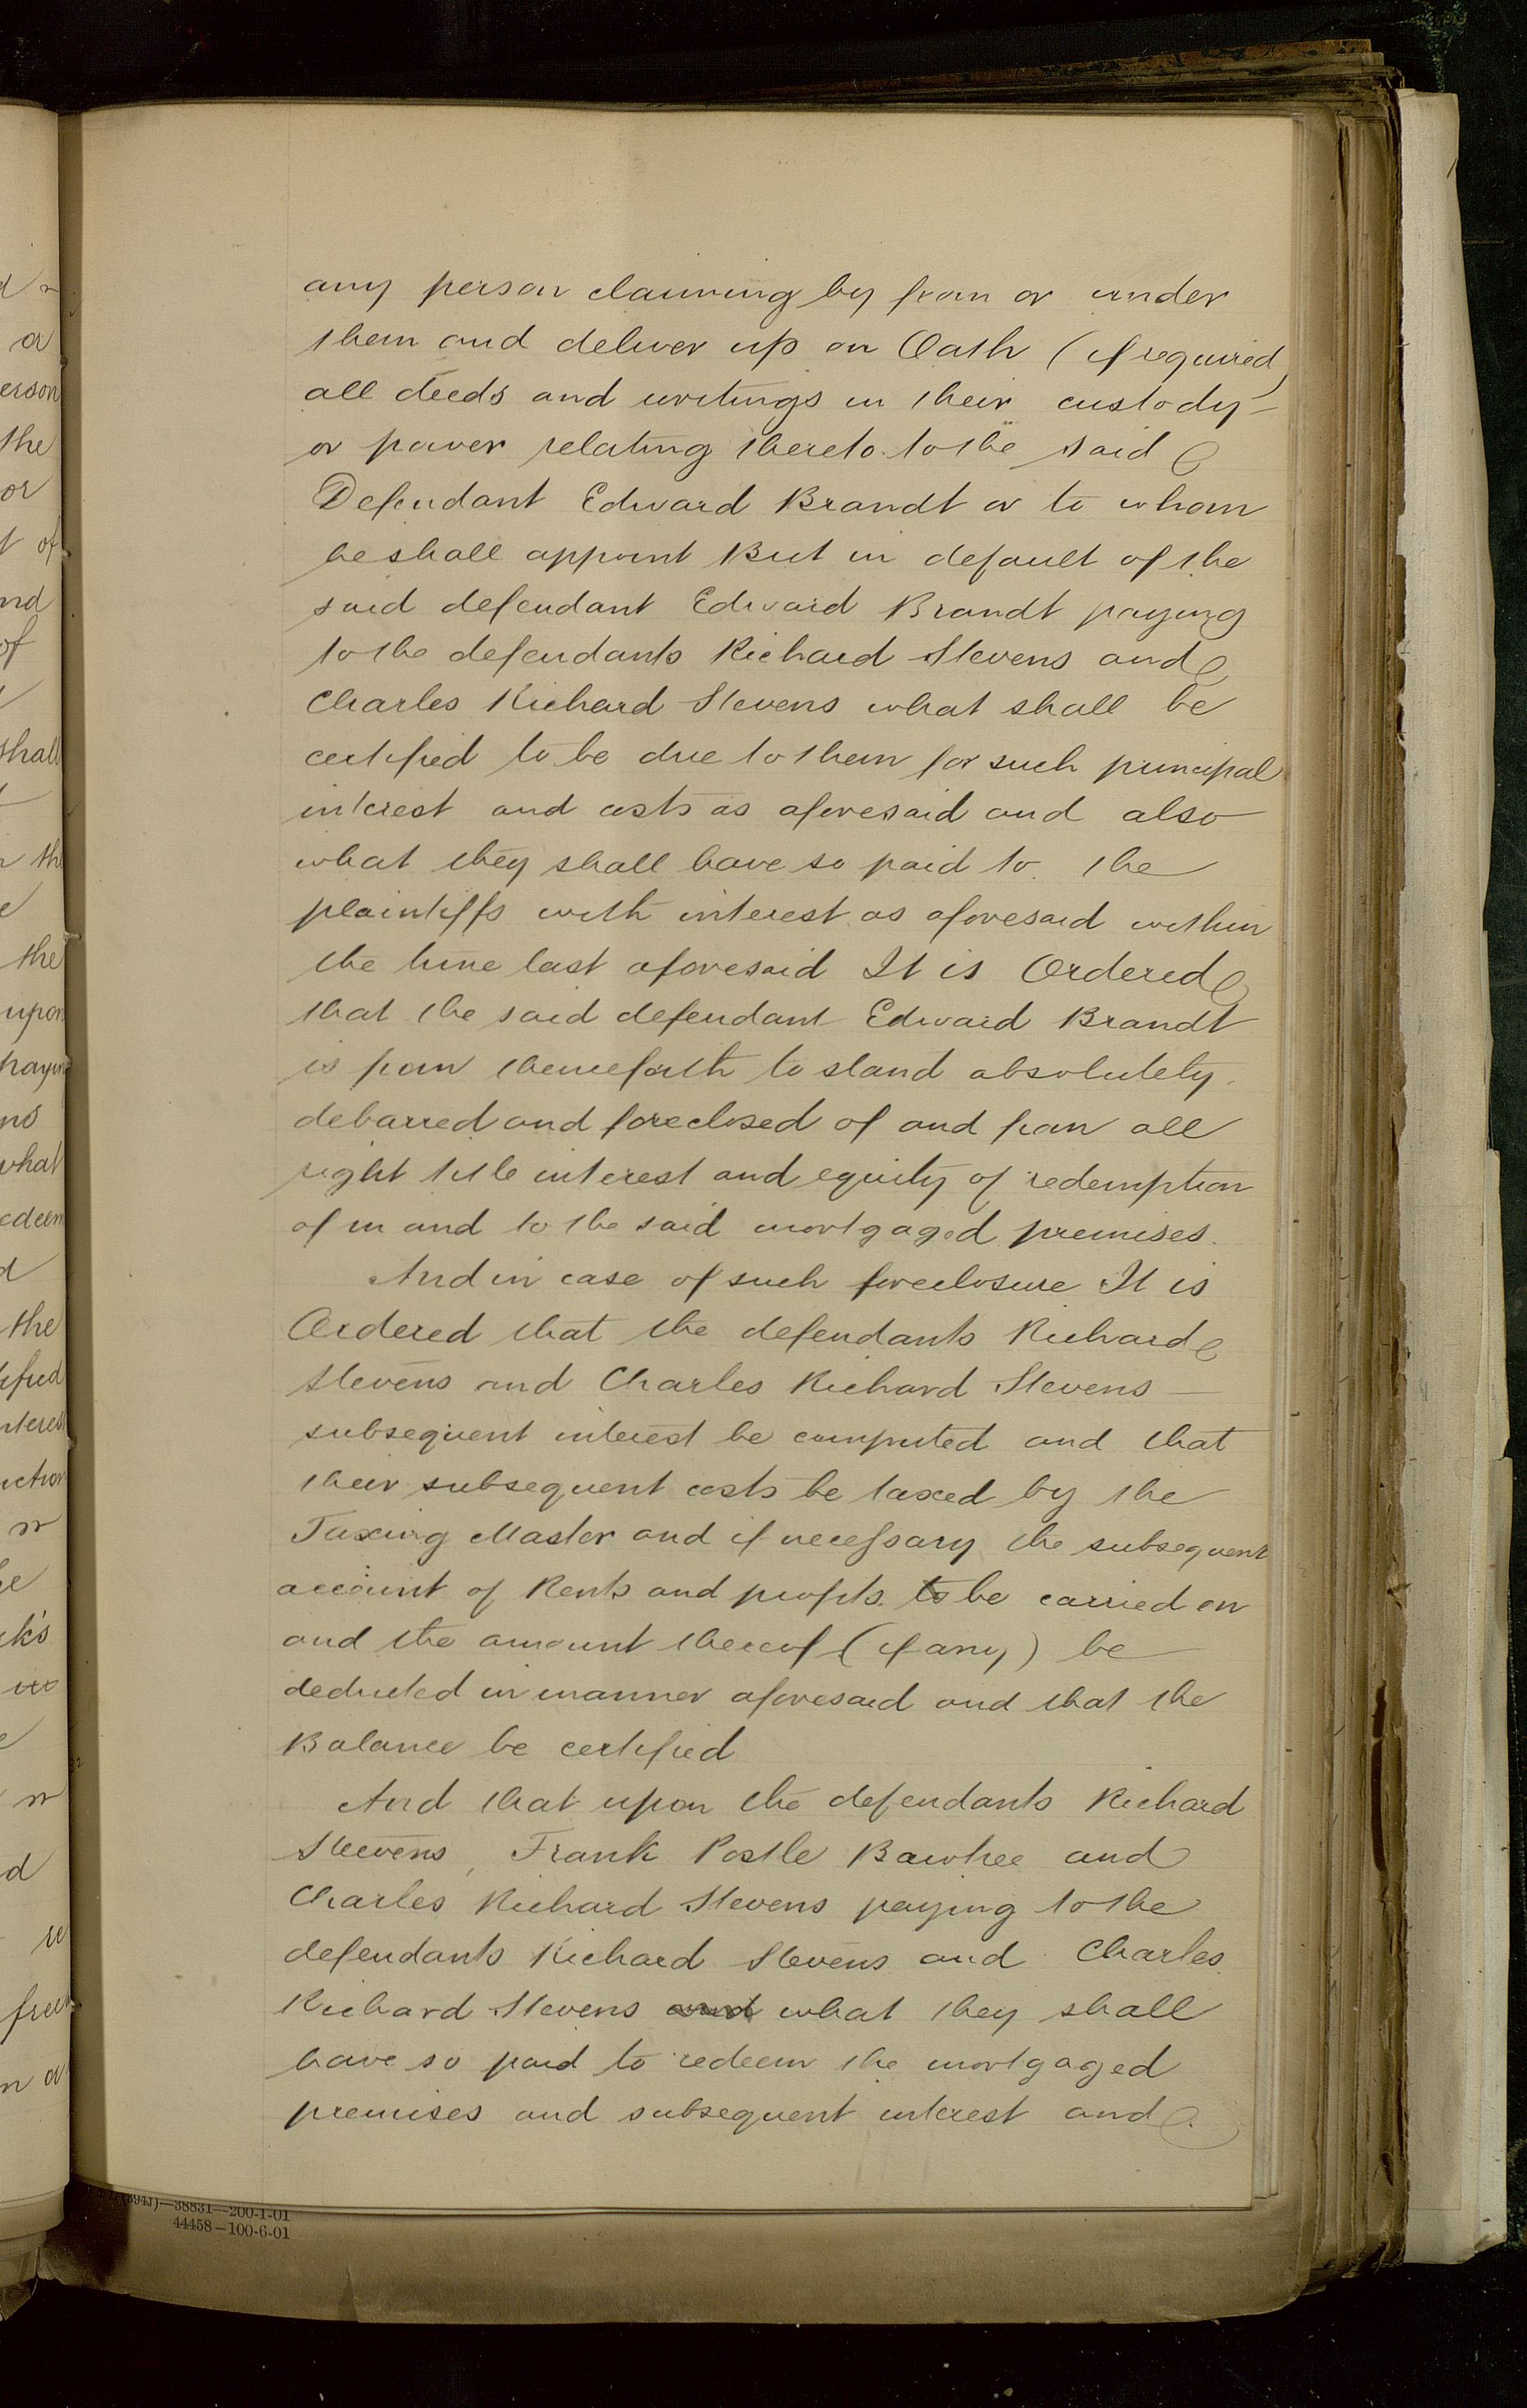 any person claiming by from or under
them and deliver up on Oath (if required)
all deeds and writings in their custody
or power relating thereto to the said
Defendant Edward Brandt or to whom
he shall appoint But in default of the
said defendant Edward Brandt paying
to the defendants Richard Stevens and
Charles Richard Stevens what shall be
certified to be due to them for such principal
interest and costs as aforesaid and also
what they shall have so paid to the
plaintiffs with interest as aforesaid within
the time last aforesaid It is Ordered
that the said defendant Edward Brandt
is from thenceforth to stand absolutely
debarred and foreclosed of and from all
right title interest and equity of redemption
of in and to the said mortgaged premises.
And in case of such foreclosure It is
Ordered that the defendants Richard
Stevens and Charles Richard Stevens
subsequent interest be computed and that
their subsequent costs be taxed by the
Taxing Master and if necessary the subsequent
account of Rents and profits to be carried on
and the amount thereof (if any) be
deducted in manner aforesaid and that the
Balance be certified
And that upon the defendants Richard
Stevens, Frank Postle Bawhee and
Charles Richard Stevens paying to the
defendants Richard Stevens and Charles
Richard Stevens and what they shall
have so paid to redeem the mortgaged
premises and subsequent interest and
38831—200-1-01
44458—100-6-01